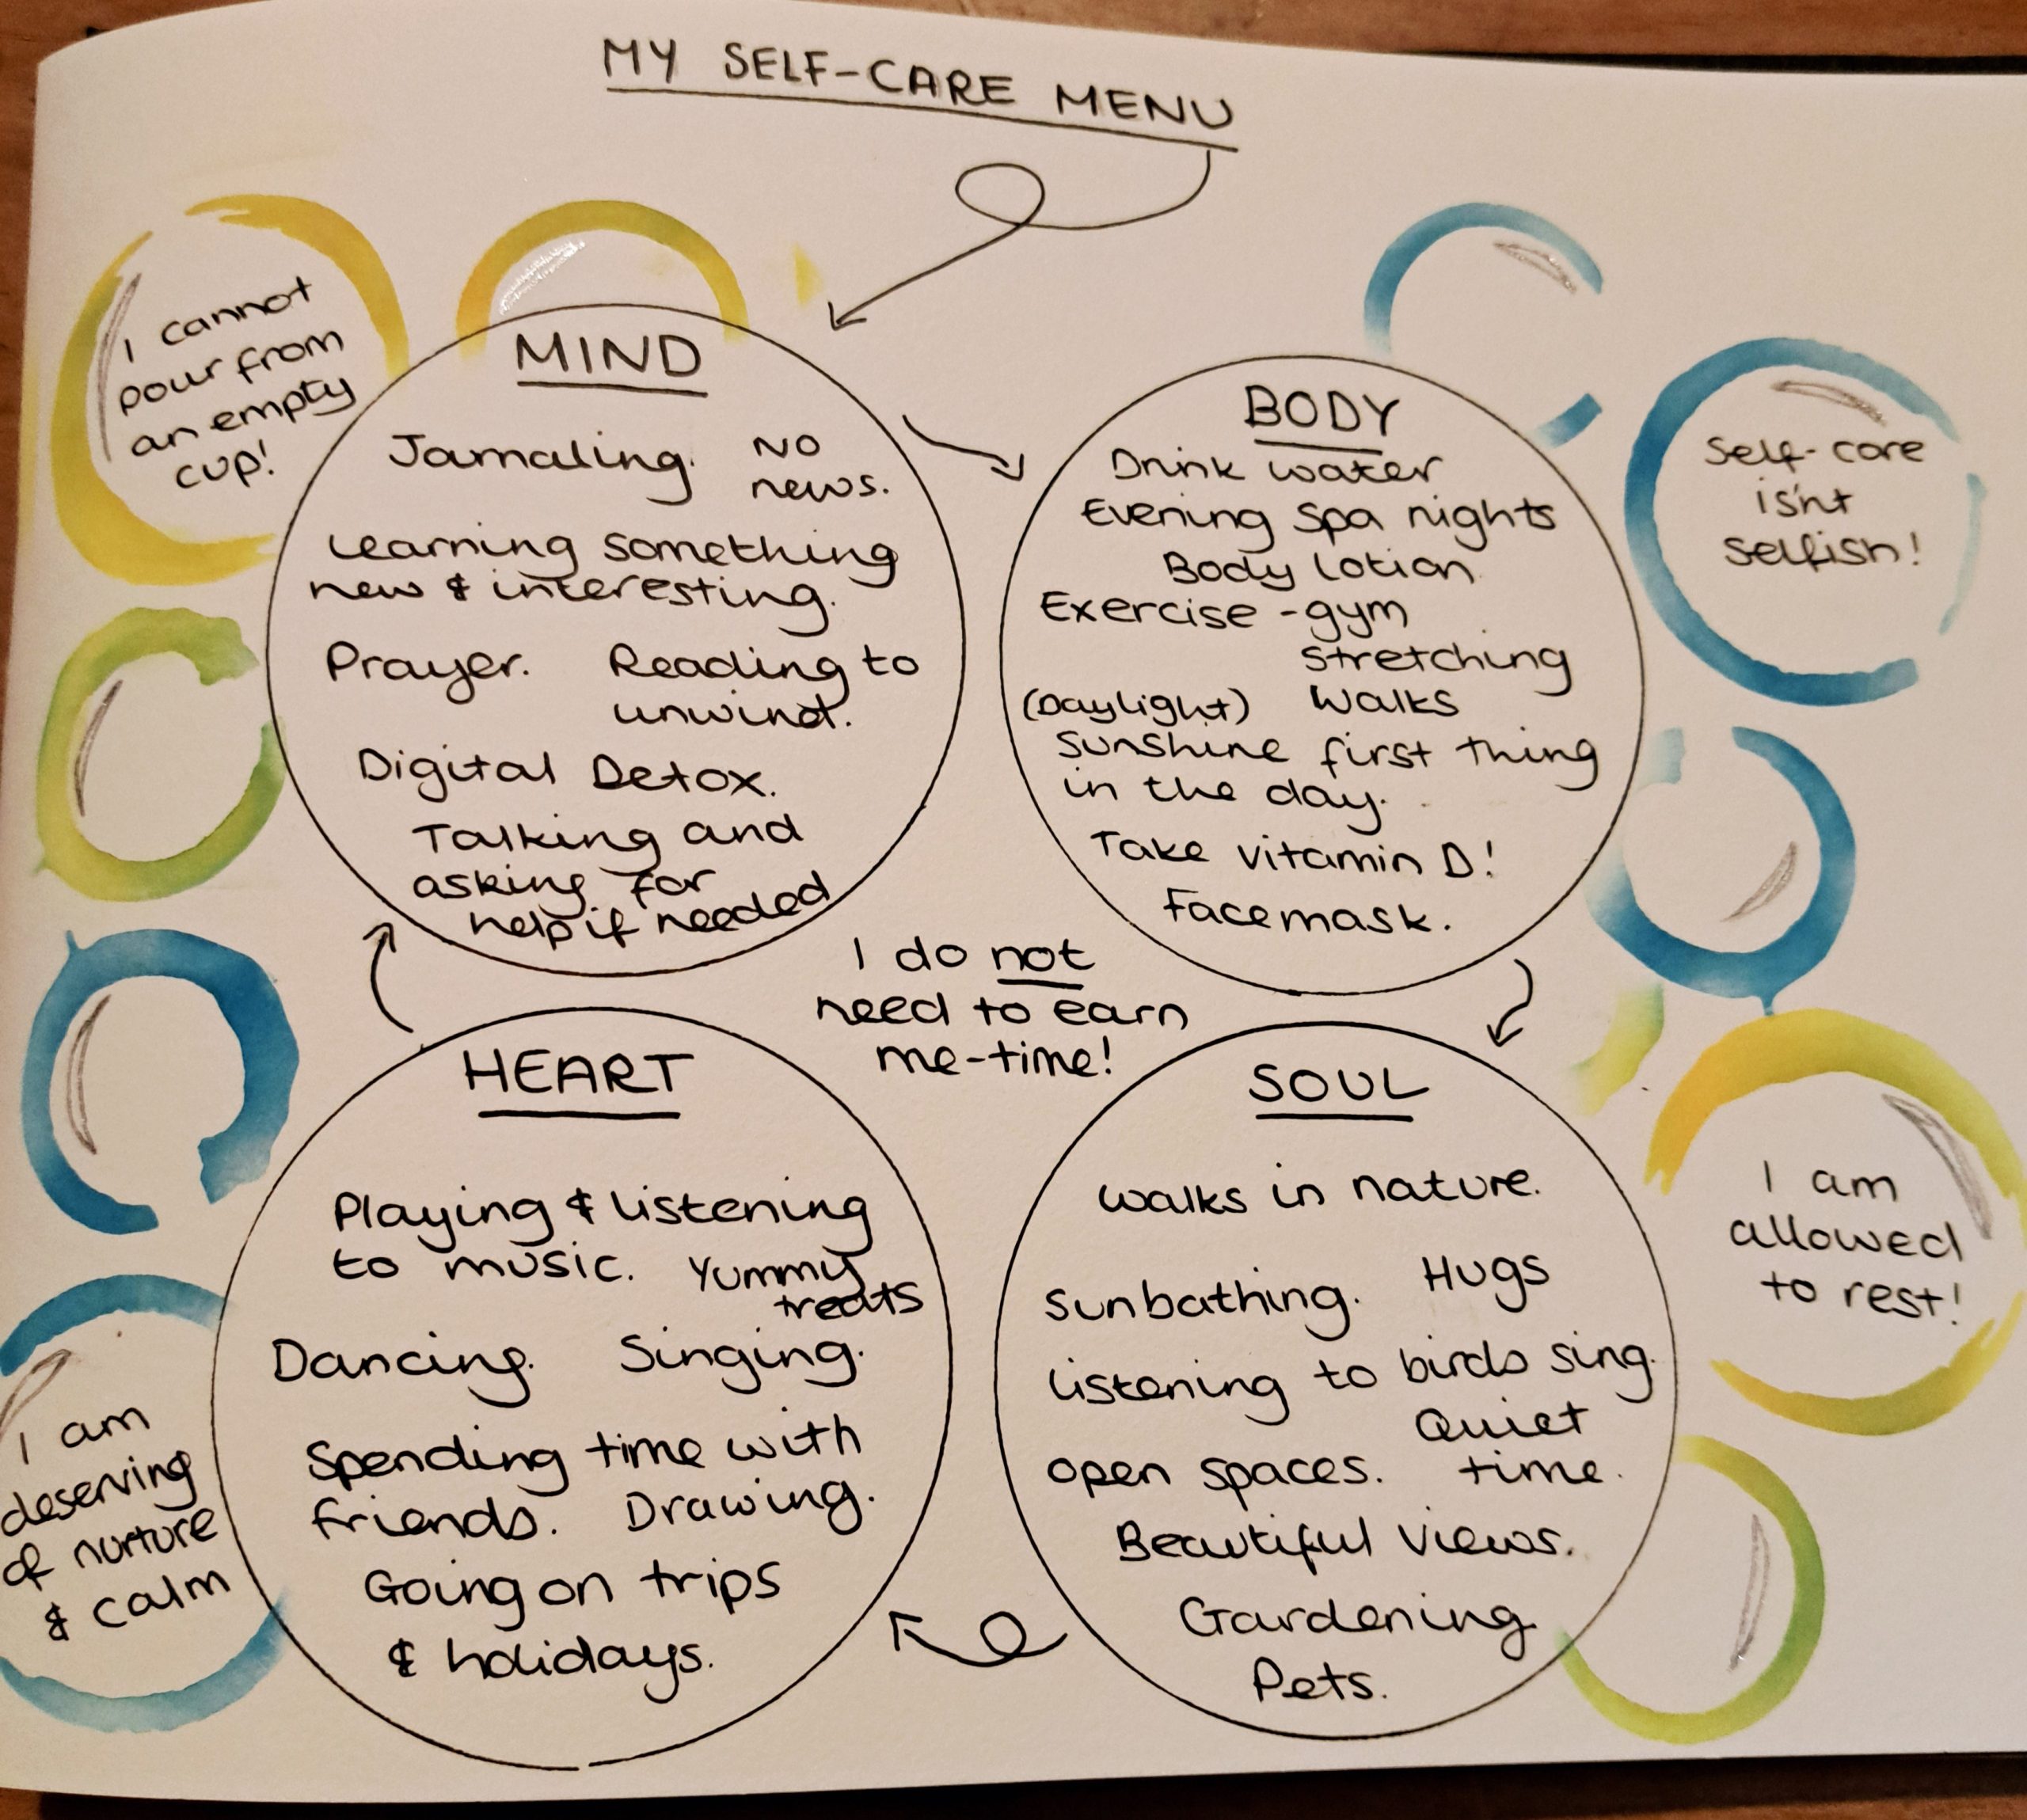 MY SELF-CARE MENU
I cannot
pour from
an empty
cup!
MIND
Jornaling. NO
news.
Learning something
new & interesting.
Prayer. Reading to
unwind.
Digital Detox.
Talking and
asking for
help if needed
BODY
Drink water
Evening spa nights
Body lotion.
Exercise - gym
stretching
(Daylight) Walks
sunshine first thing
in the day.
Take vitamin D!
Facemask.
Self-care
isn't
selfish!
I do not
need to earn
me-time!
HEART
Playing & listening
to music. Yummy
treats
Dancing. Singing.
Spending time with
friends. Drawing.
Going on trips
& holidays.
SOUL
Walks in nature.
Sunbathing. Hugs
Listening to birds sing.
Quiet
open spaces. time.
Beautiful views.
Gardening.
Pets.
I am
allowed
to rest!
I am
deserving
of nurture
& calm